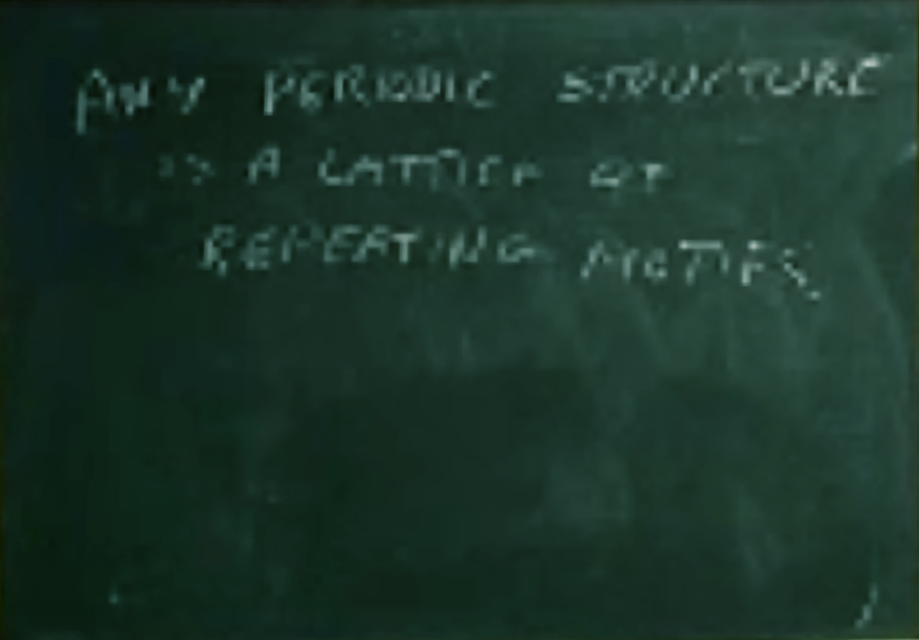 ANY PERIODIC STRUCTURE
IS A LATTICE OF
REPEATING MOTIFS